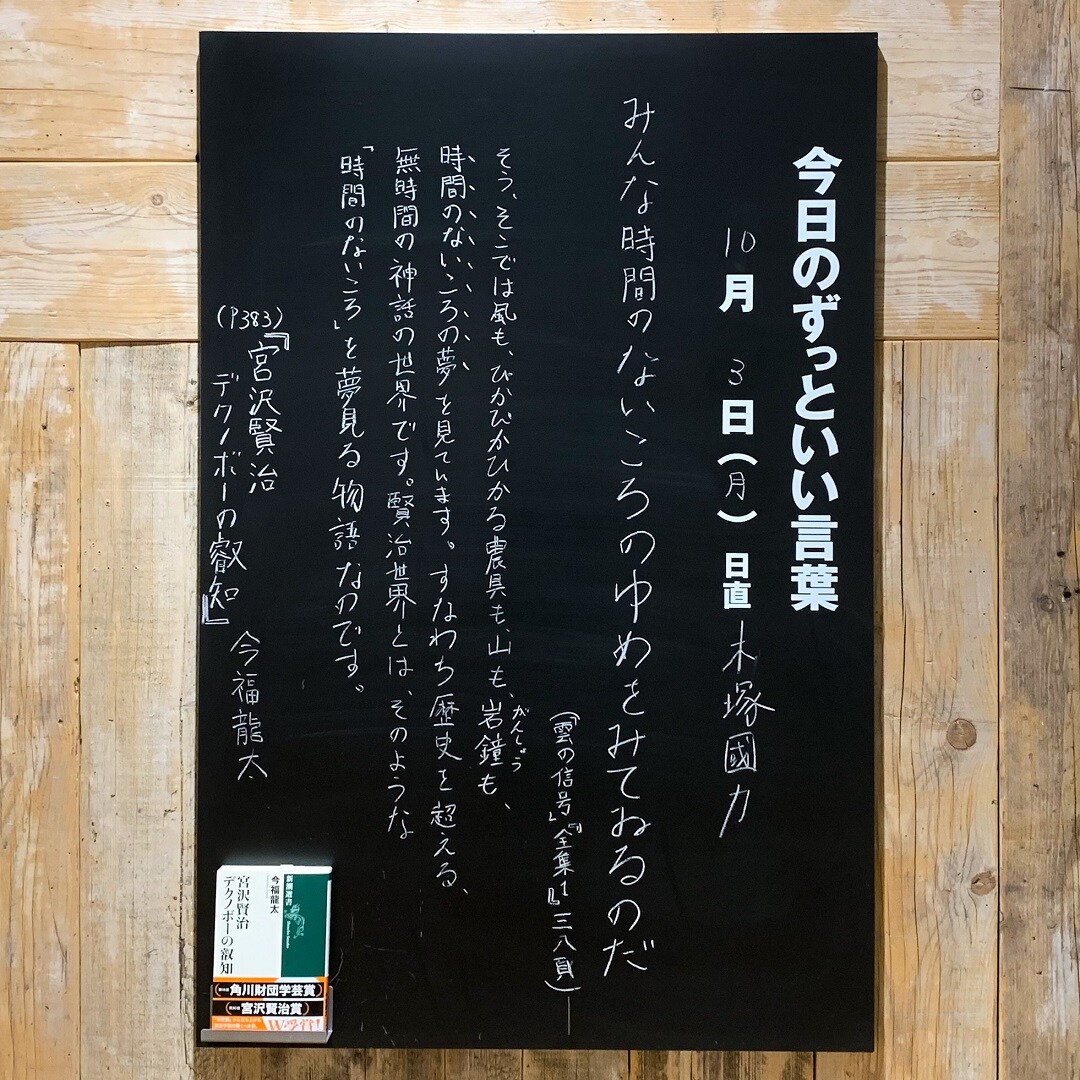 今日のずっといい言葉
10月 3日(月) 日直 木塚國力
みんな時間のないころのゆめをみておるのだ
(「雲の信号」『全集1』三八頁)
そう、そこでは風も、ぴかぴかひかる農具も、山も、岩鐘も、
がんしょう
時間のないころの夢を見ています。すなわち歴史を超える、
無時間の神話の世界です。賢治世界とは、そのような
「時間のないころ」を夢見る物語なのです。
(P383)
『宮沢賢治
デクノボーの叡知』
今福龍太
新潮選書
今福龍太
宮沢賢治
デクノボーの叡知
角川財団学芸賞
宮沢賢治賞
W受賞!